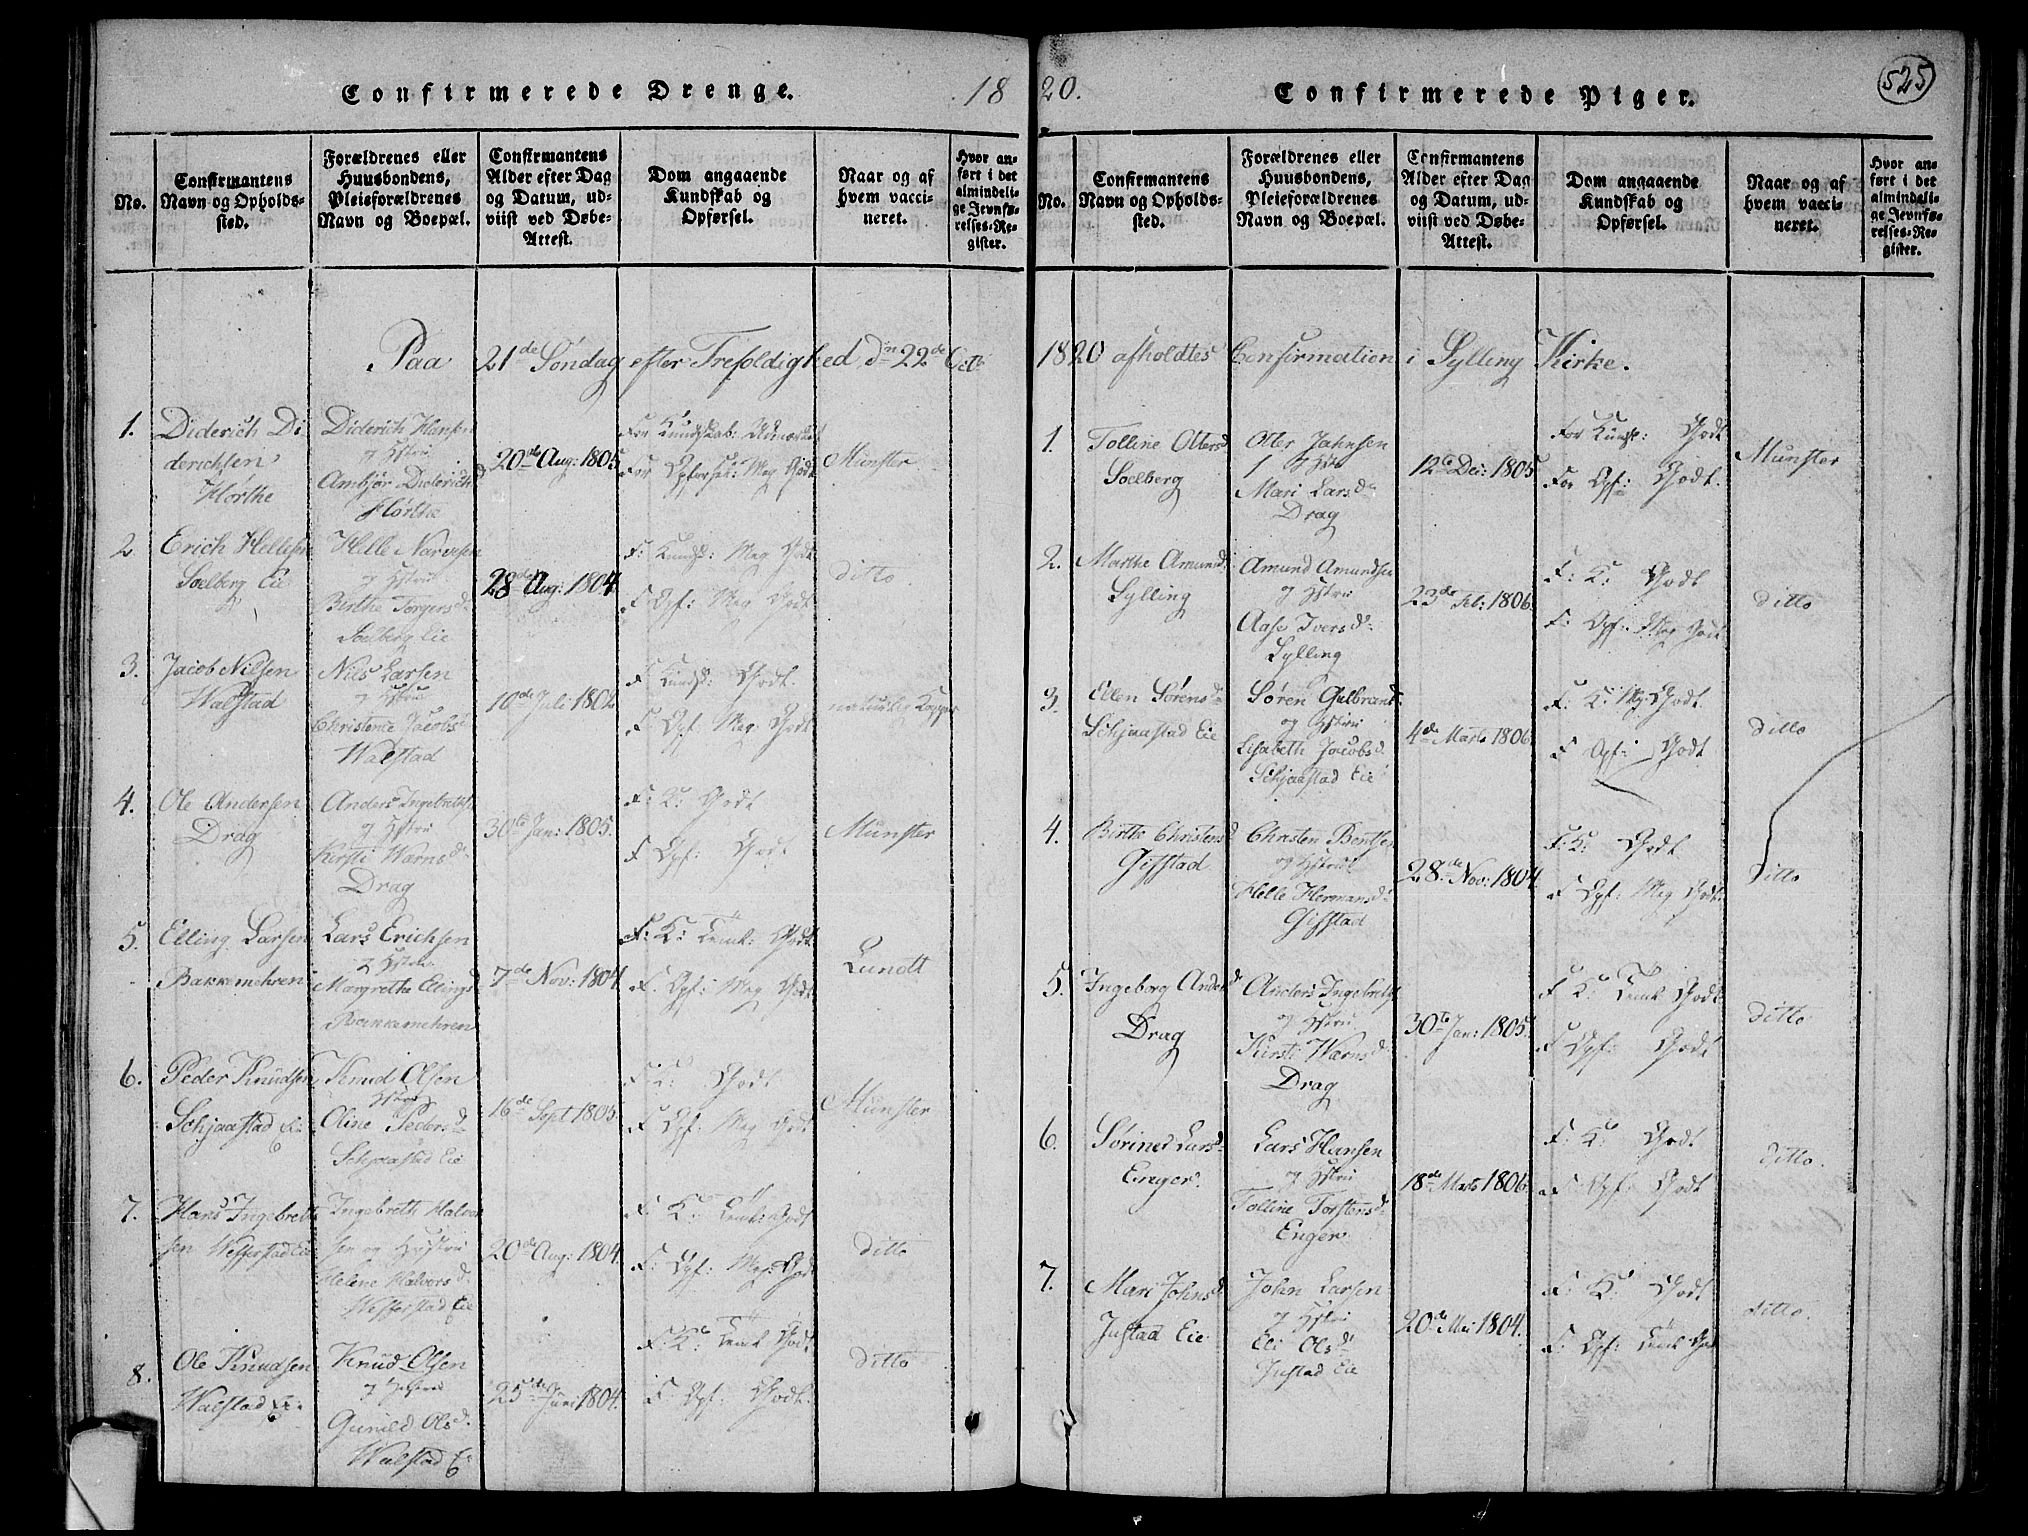 Confirmerede Drenge. 18
No.
Confirmantens Navn og Opholds-
sted.
Forældrenes eller
Huusbondens,
Pleieforældrenes
Navn og Boepæl.
Confirmantens
Alder efter Dag
og Datum, ud-
viist ved Døbe-
Attest.
Dom angaaende
Kundskab og
Opførsel.
Naar og af
hvem vacci-
neret.
Hvor an-
ført i det
almindeli-
ge Jevnfø-
relses-Re-
gister.
Paa 21de Søndag efter Trefoldighed dn 22de Oct:
1.
Diderich Di
derichsen
Hørthe
Diderich Hansen
og Hstru
Ambjør Diderichsd
Hørthe
20de Aug: 1805
For Kundskab:
For Opførsel: Meg Godt
Münster
2
Erich Hellesen
Soelberg Eie
Helle Narvesen
og Hstru
Birthe Torgersd:
Soelberg Eie
28de Aug: 1804
F: Kundsk: Meg Godt
F Opf: Meg Godt
ditto
3.
Jacob Nilsen
Walstad
Nils Larsen
og Hstru
Christense Jacobsd
Walstad
10de Juli 1802
F Kundsk: Godt.
F. Opf: Meg Godt
naturlig Kopper
4.
Ole Andersen
Drag
Anders Ingebrethse
og Hstru
Kirsti Warnsd:
Drag
30te Jan: 1805.
F: K: Godt
F Opf: Godt
Münster
5.
Elling Larsen
Bakkemehren
Lars Erichsen
og Hstru
Margrethe Elingsd
Bakkemehren
7de Nov: 1804.
F: K: Teml: Godt.
F. Opf: Meg Godt
Lundt
6.
Peder Knudsen
Schjaastad E:
Knud Olsen
Hstru
Oline Pedersd
Schjaastad Eie
16de Sept 1805
F K: Godt
F Opf: Meg Godt
Münster
7.
Hans Ingebreth
sen Wefferstad Eie
Ingebreth Halvor
sen og Hustru
Helene Halvorsd:
Wefferstad Eie
20de Aug: 1804.
F. K: Teml: Godt
F: Opf: Meg: Godt
ditto
8.
Ole Knudsen
Walstad Ei:
Knud Olsen
og Hstru
Gunild Olsd.
Walstad E:
25de Juni 1804.
F. K: Teml Godt
F. Opf: Godt.
ditto
20. Confirmerede Piger. 525
No.
Confirmantens
Navn og Opholds-
sted.
Forældrenes eller
Huusbondens,
Pleieforældrenes
Navn og Boepæl.
Confirmantens
Alder efter Dag
og Datum, ud-
viist ved Døbe-
Attest.
Dom angaaende
Kundskab og
Opførsel.
Naar og af
hvem vacci-
neret.
Hvor an-
ført i det
almindeli-
ge Jevnfø-
relses-Re-
gister.
1820 afholdtes Confirmation i Sylling Kirke.
1.
Tolline Ottersd
Soelberg
Otter Jahnsen
og Hstru
Mari Larsd:
Drag
12te Dec: 1805
For Kundsk: Godt
For Opf: Godt.
Münster
2.
Marthe Amundsd
Sylling
Amund Amundsen
og Hstru
Aase Iversd:
Sylling
23de Feb: 1806.
F: K: Godt
F: Opf: Meg Godt
ditto
3.
Ellen Sørensd
Schjaastad Eie
Søren Gulbrands
og Hstru
Lisabeth Jacobsd.
Schjaastad Eie
4de Marts 1806
F: K: Mg: Godt
F Opf: Godt
ditto
4.
Birthe Christensd
Gifstad
Christen Bentsen
og Hstru
Helle Hermansd:
Gifstad
28de Nov: 1804.
F: K: Godt
F Opf: Meg Godt
ditto
5.
Ingeborg Andersd
Drag
Anders Ingebrethse
og Hstru
Kirsti Warnsd.
Drag
30te Jan: 1805.
F K: Teml Godt
F Opf: Godt
ditto
6.
Sørine Larsd:
Enger.
Lars Hansen
og Hstru
Tolline Torstensd.
Enger
18de Marts 1806.
F. K: Godt
F Opf: Godt
ditto.
7.
Mari Johnsd.
Justad Eie
John Larsen
og Hstru
Eli Olsd
Justad Eie
20de Mai 1804.
F: K: Godt
F: Opf: Teml Godt
ditto.